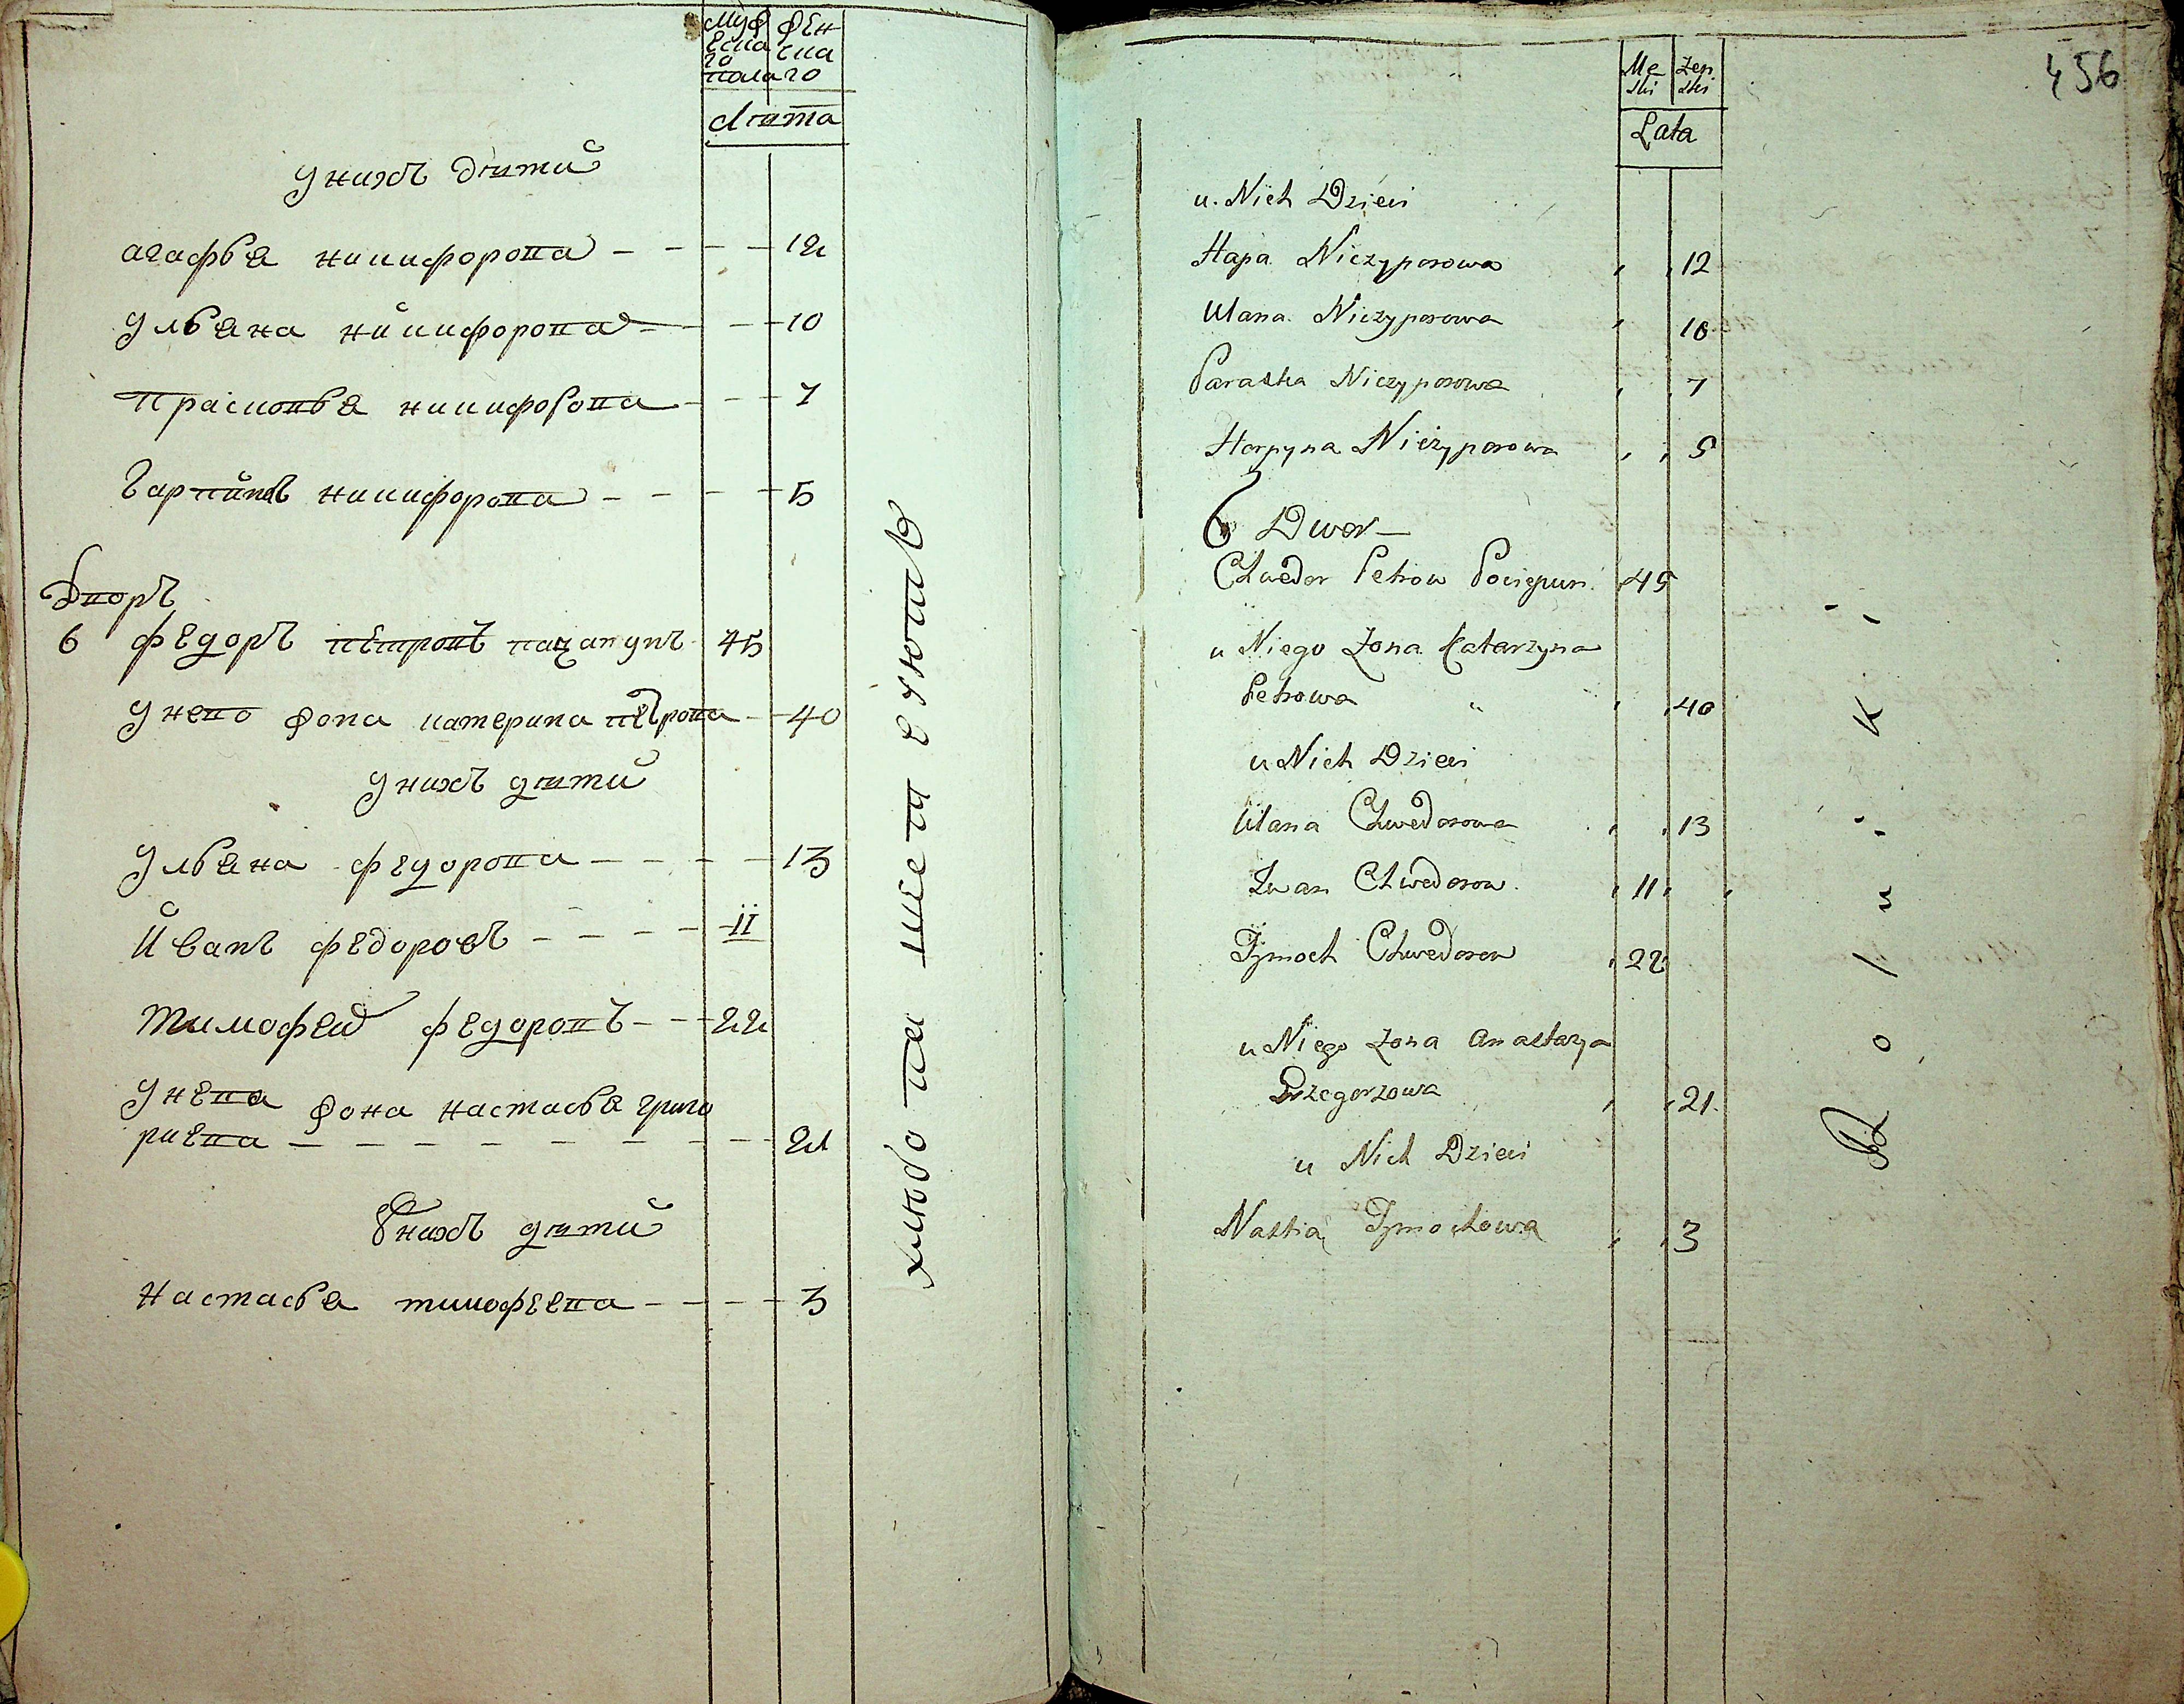 Муж
еска
го
Жен
ска
го
пола
Лѣта
У нихъ дѣтй
агафья никифорова 12
Ульяна никифорова 10
Прасковья никифорова 7
Гарпина никифорова 5
Дворъ
6 Федоръ петровъ пацапунъ 45
У нево жона катерина петрова 40
У нихъ дѣтй
Ульяна федорова 13
Иванъ федоровъ 11
Тимофей федоровъ 22
У нева жона настасья григо
риева 21
У нихъ дѣтй
Настасья тимофеева 3
хлѣбо па шест
456
Mę
ski
Żeń
ski
Lata
u. Nich Dzieci
Hapa Niczyporowa 12
Ulana Niczyporowa 10
Paraska Niczyporowa 7
Horpyna Niczyporowa 5
6 Dwor
Chwedor Petrow Pociepun 45
u Niego Żona Katarzyna
Petrowa 40
u Nich Dzieci
Ulana Chwedorowa 13
Iwan Chwedorow 11
Tymoch Chwedorow 22
u Niego Żona Anastazya
Grzegorzowa 21
u Nich Dzieci
Nastia Tymochowa 3
Rolnik